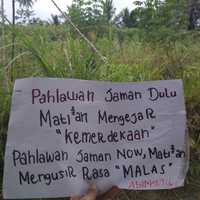 Pahlawan Jaman Dulu
Mati²an Mengejar
"Kemerdekaan"
Pahlawan Jaman NOW, Mati²an
Mengusir Rasa "MALAS"